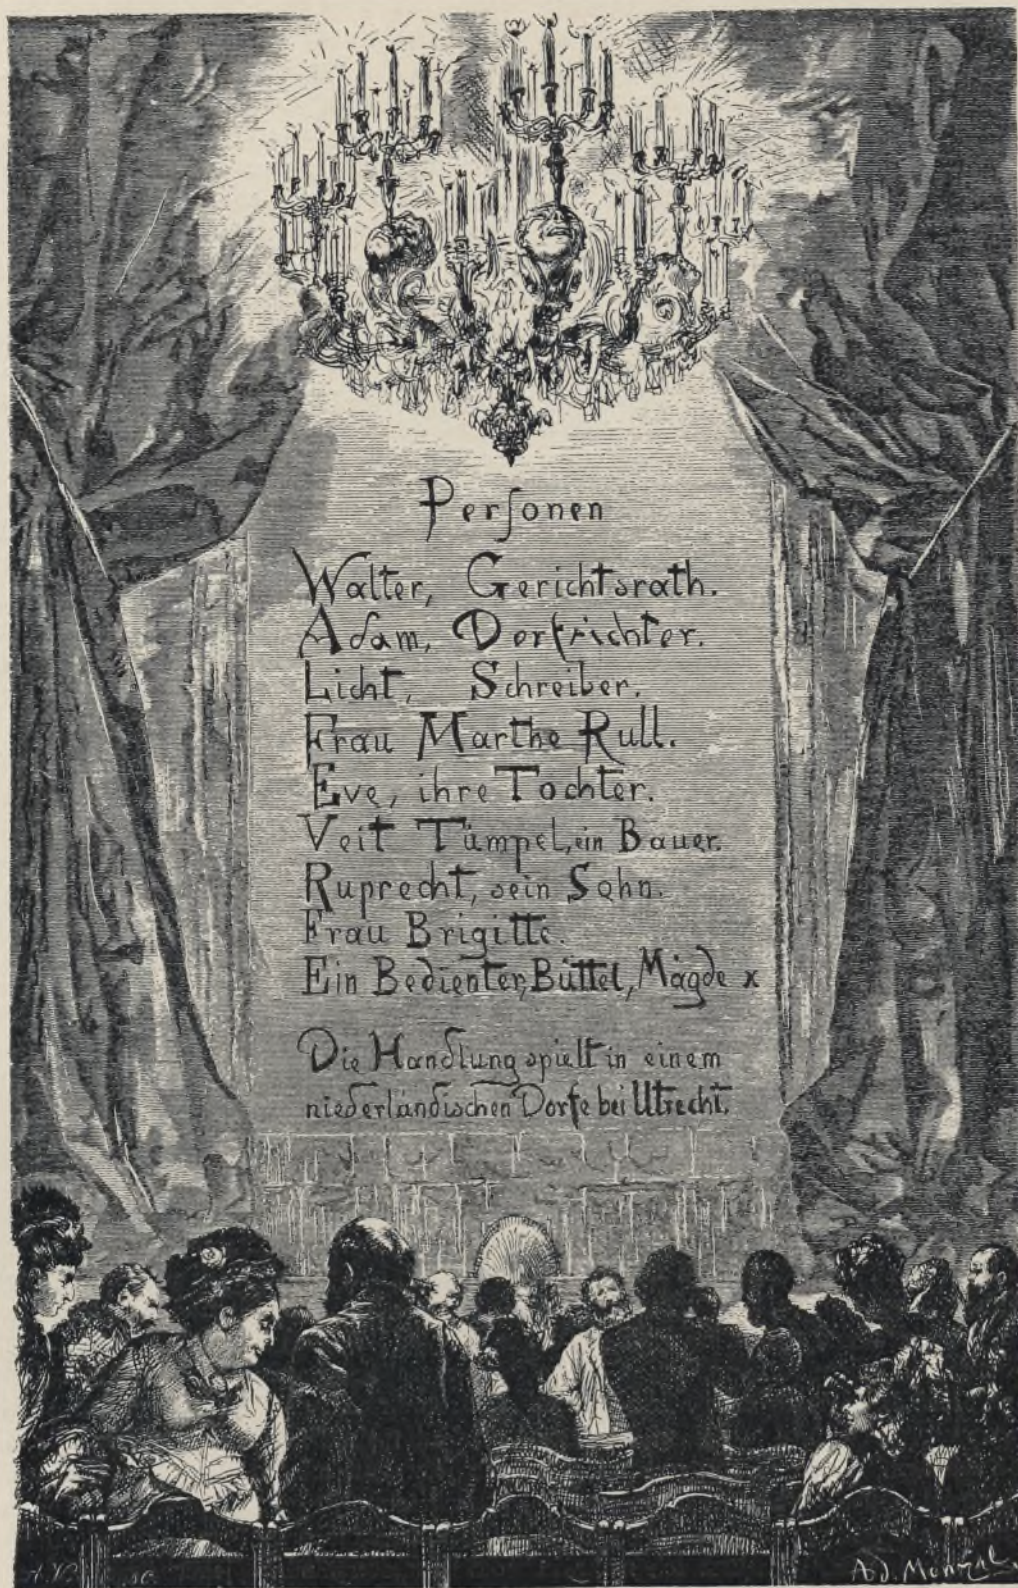 Personen
Walter, Gerichtsrath.
Adam, Dorfrichter.
Licht, Schreiber.
Frau Marthe Rull.
Eve, ihre Tochter.
Veit Tümpel, ein Bauer.
Ruprecht, sein Sohn.
Frau Brigitte.
Ein Bedienter, Büttel, Mägde x
Die Handlung spielt in einem
niederländischen Dorfe bei Utrecht.
Ad. Menzel.